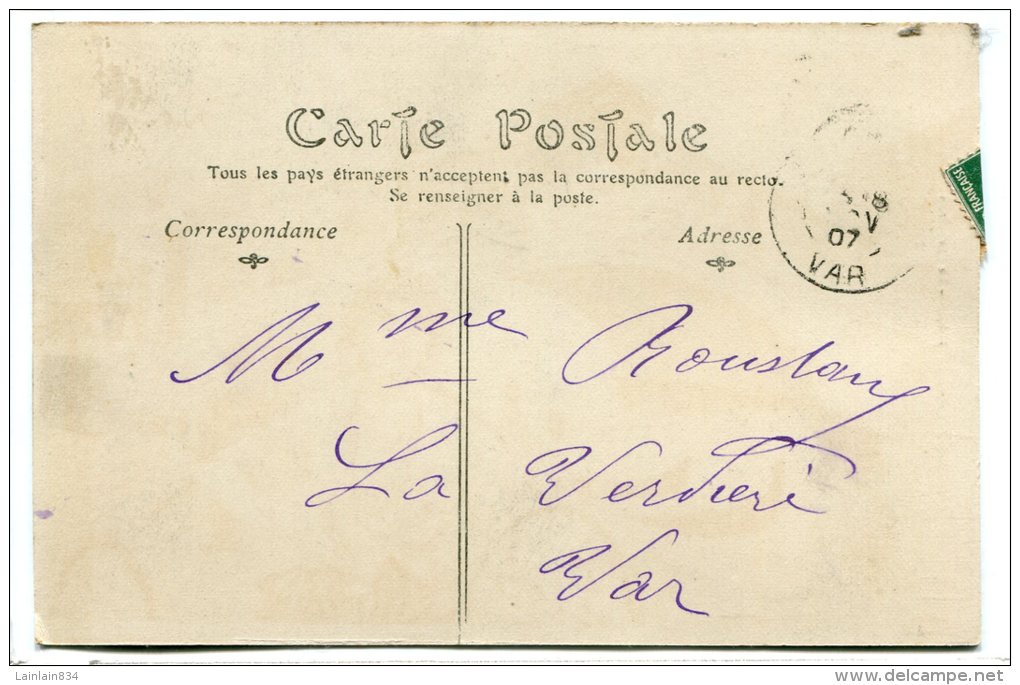 Carte Postale
Tous les pays étrangers n'acceptent pas la correspondance au recto.
Se renseigner à la poste.
Correspondance
Adresse
FRANÇAISE
07
VAR
Mme Roustang
La Verdière
Var
Lainlain834
www.delcampe.net